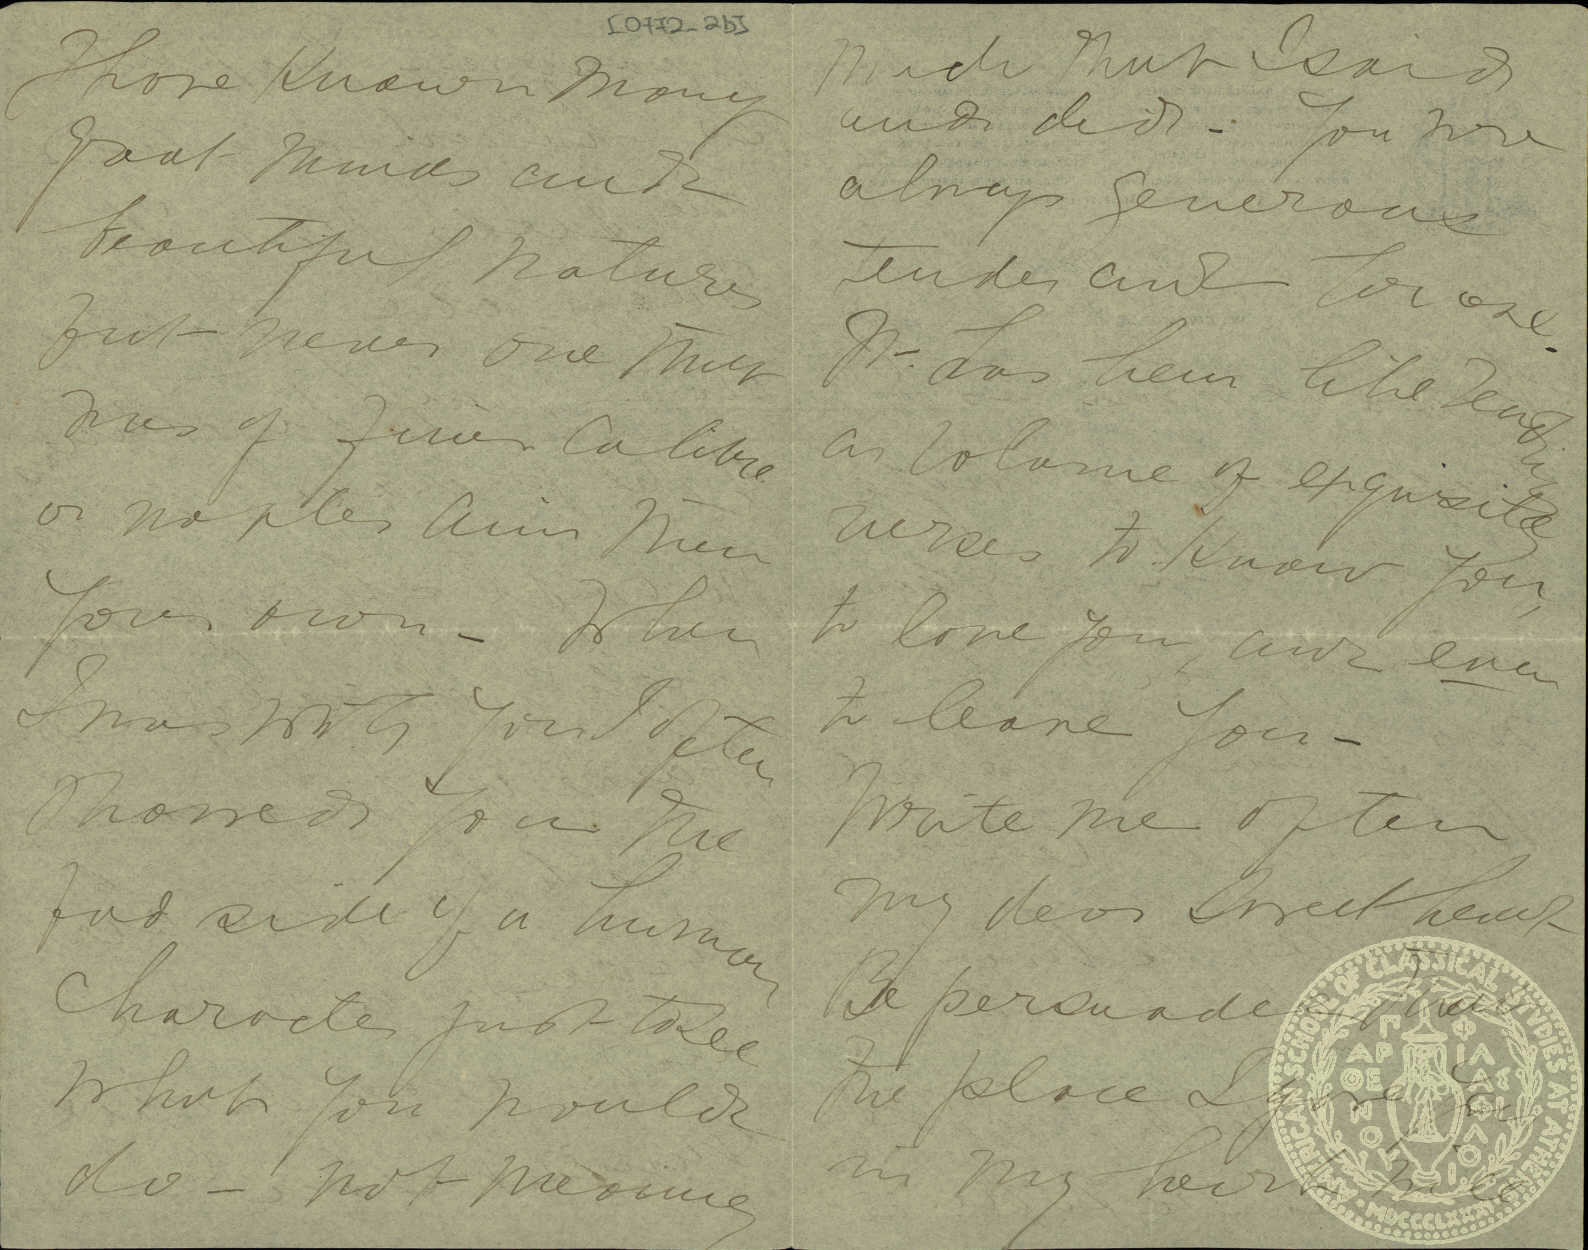 [0772-2b]
I have known many
great minds and
beautiful natures
but never one that
was of finer calibre
or nobler aim than
your own - When
I was with you I often
showed you the
bad side of a human
character just to see
what you would
do - not meaning
much that I said
and did - You were
always generous
tender and
It has been like reading
a volume of exquisite
verses to know you,
to love you, and even
to leave you -
Write me often
my dear Sweetheart
Be persuaded that
the place I gave you
in my heart
AMERICAN SCHOOL OF CLASSICAL STVDIES AT ATHENS
MDCCCLXXXI
ΠΑΡΘΕΝΟΥ ΦΙΛΑΣ ΦΙΛΟΙ